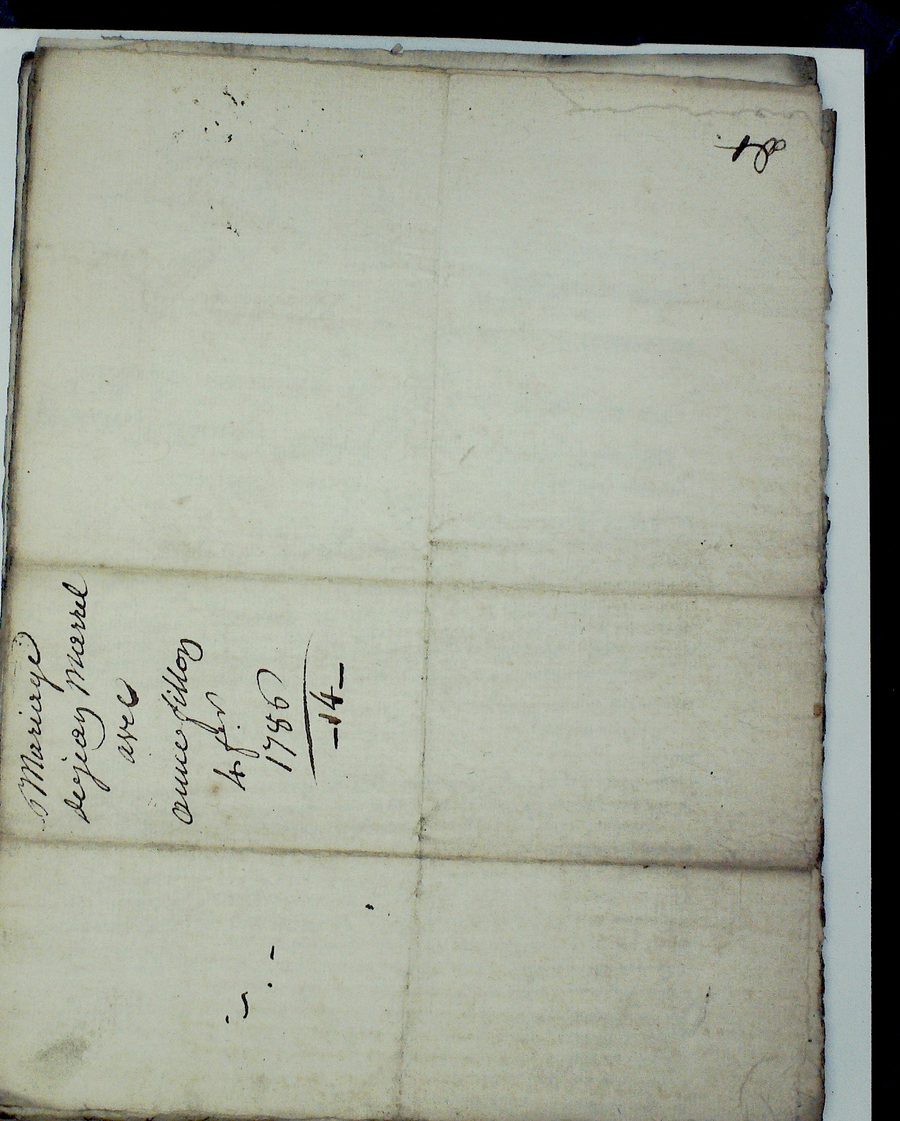 Mariage
dejean Marrel
avec
anne fillon
4 fer
1786
-14-